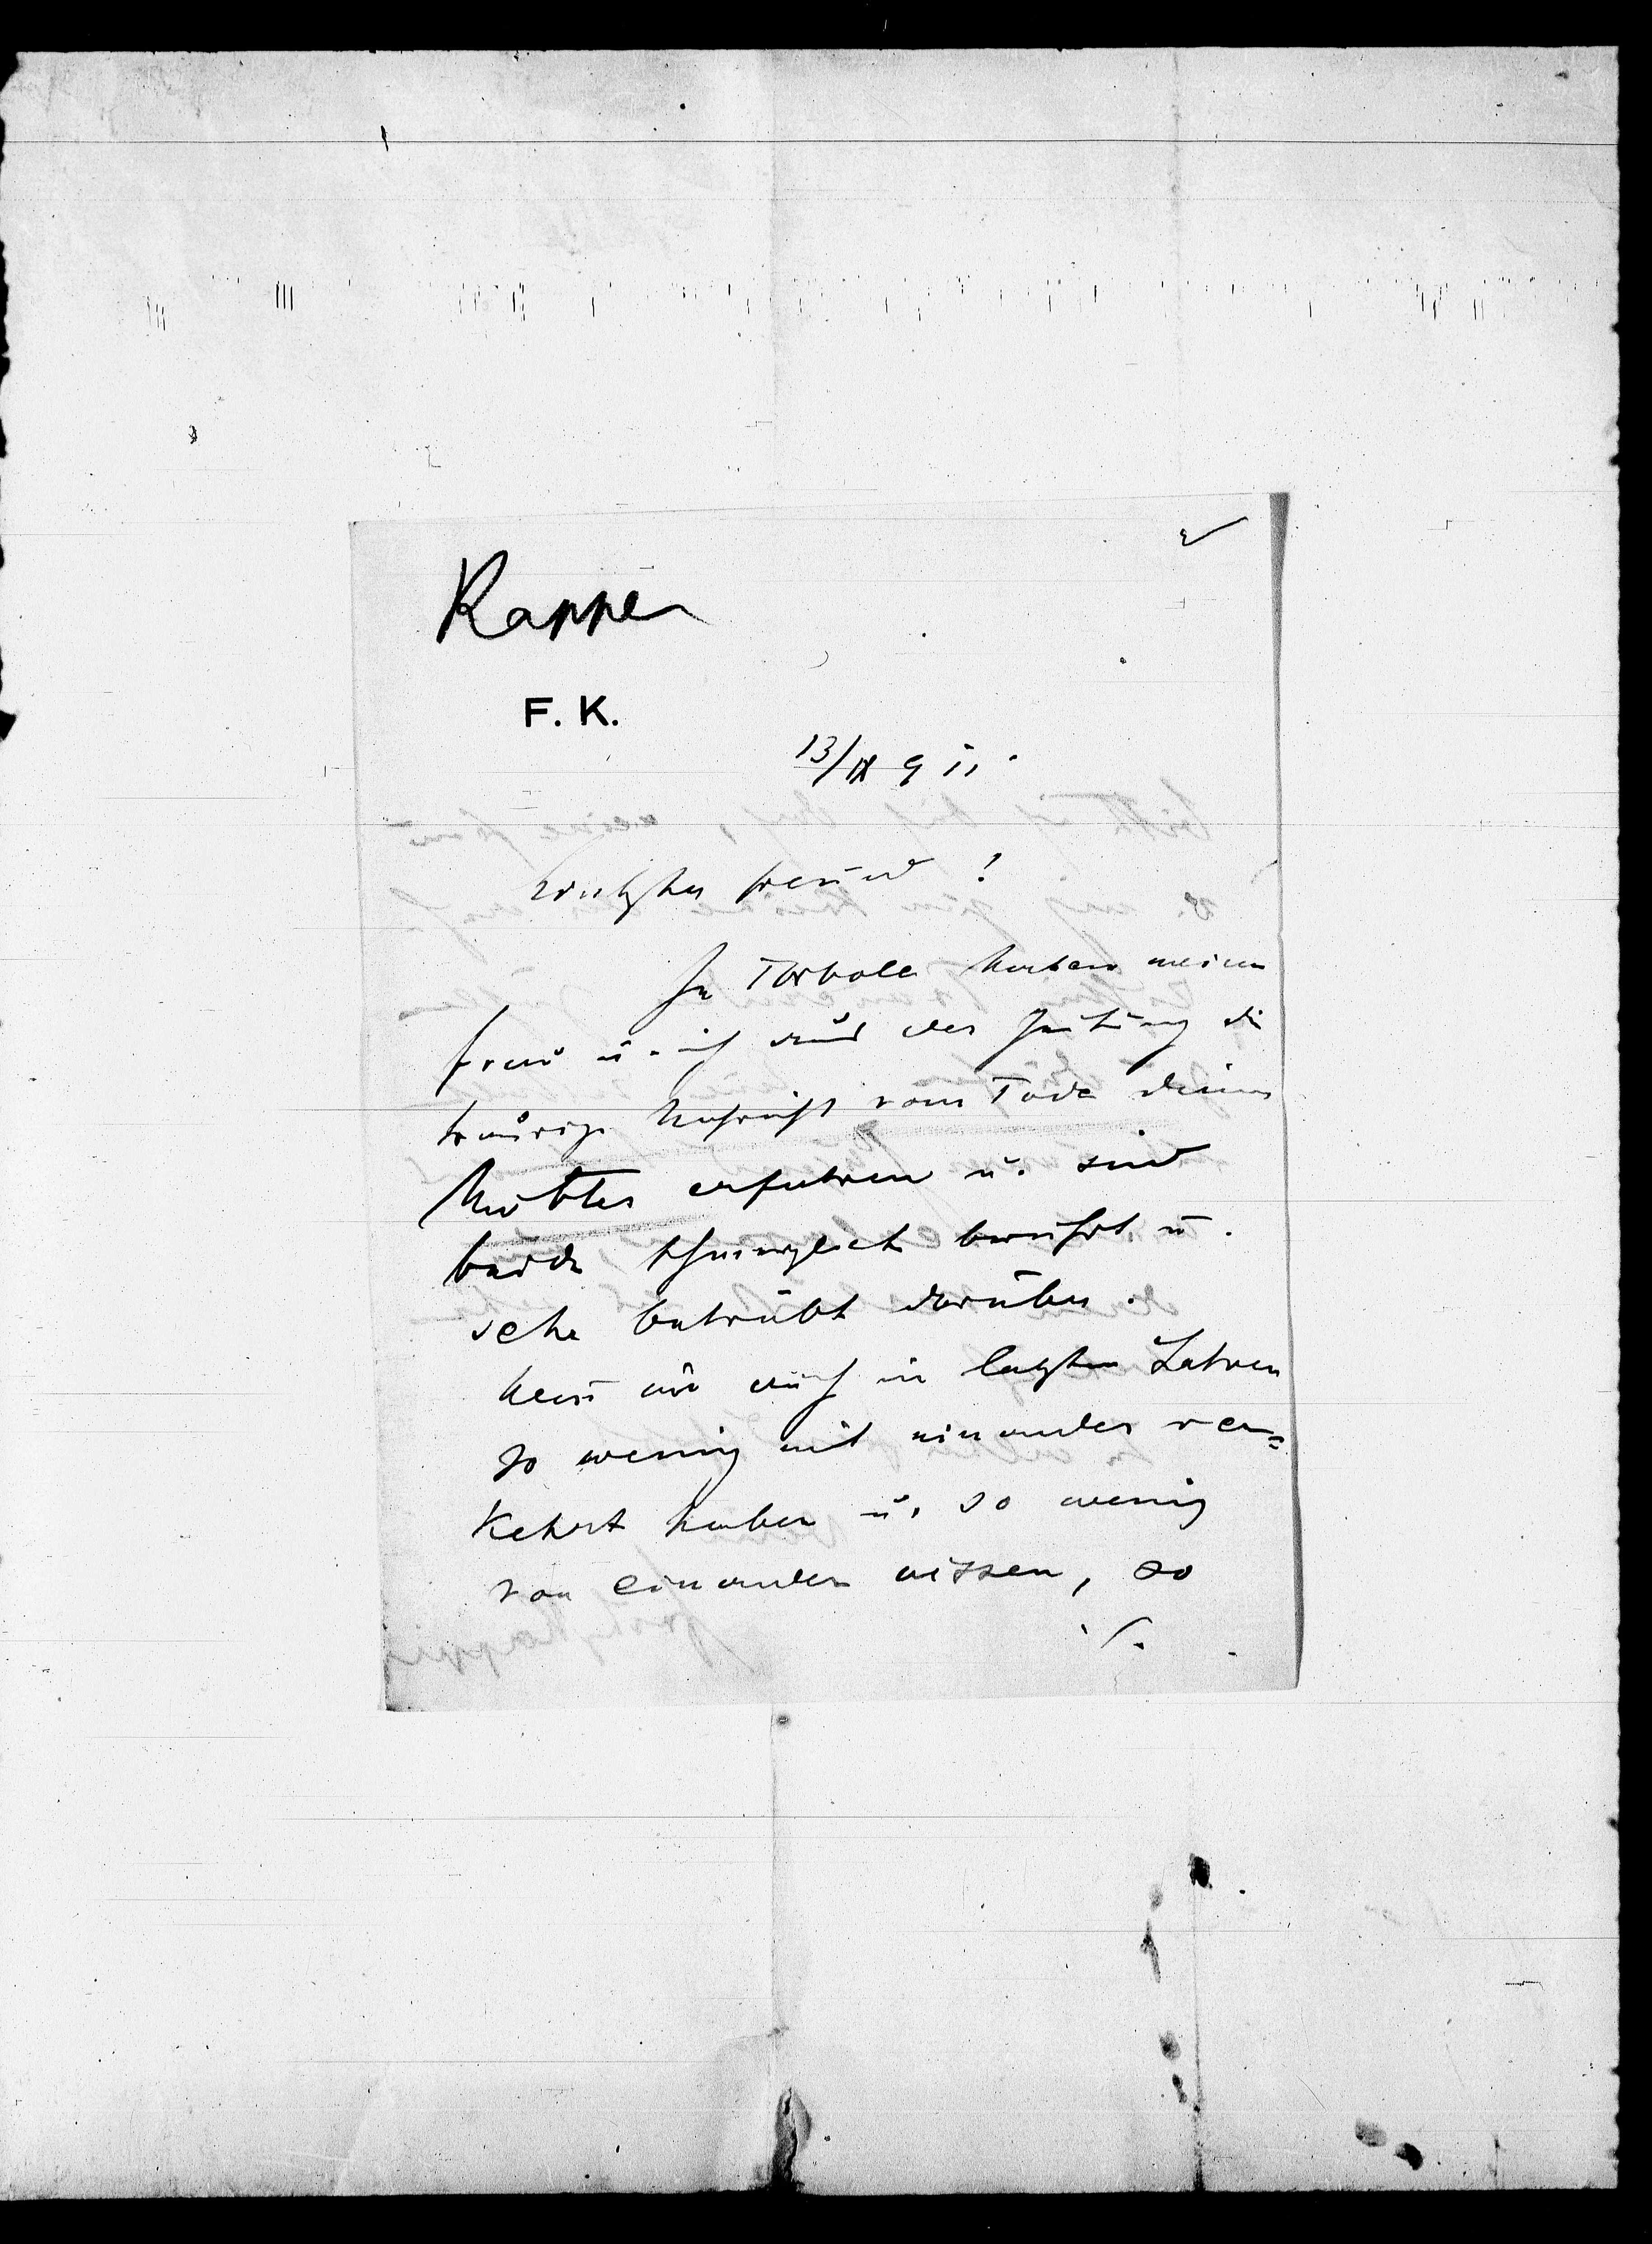 Kapper
F. K.
13/IX 911.
Freund!
In Torbole haben meine
Frau u. ich aus der Zeitung die
traurige Nachricht vom Tode deiner
Mutter erfahren u. sind
beide schmerzlich berührt u.
sehr betrübt darüber.
Wenn wir auch in letzten Jahren
so wenig mit einander ver=
kehrt haben u. so wenig
von einander wissen, so
./.